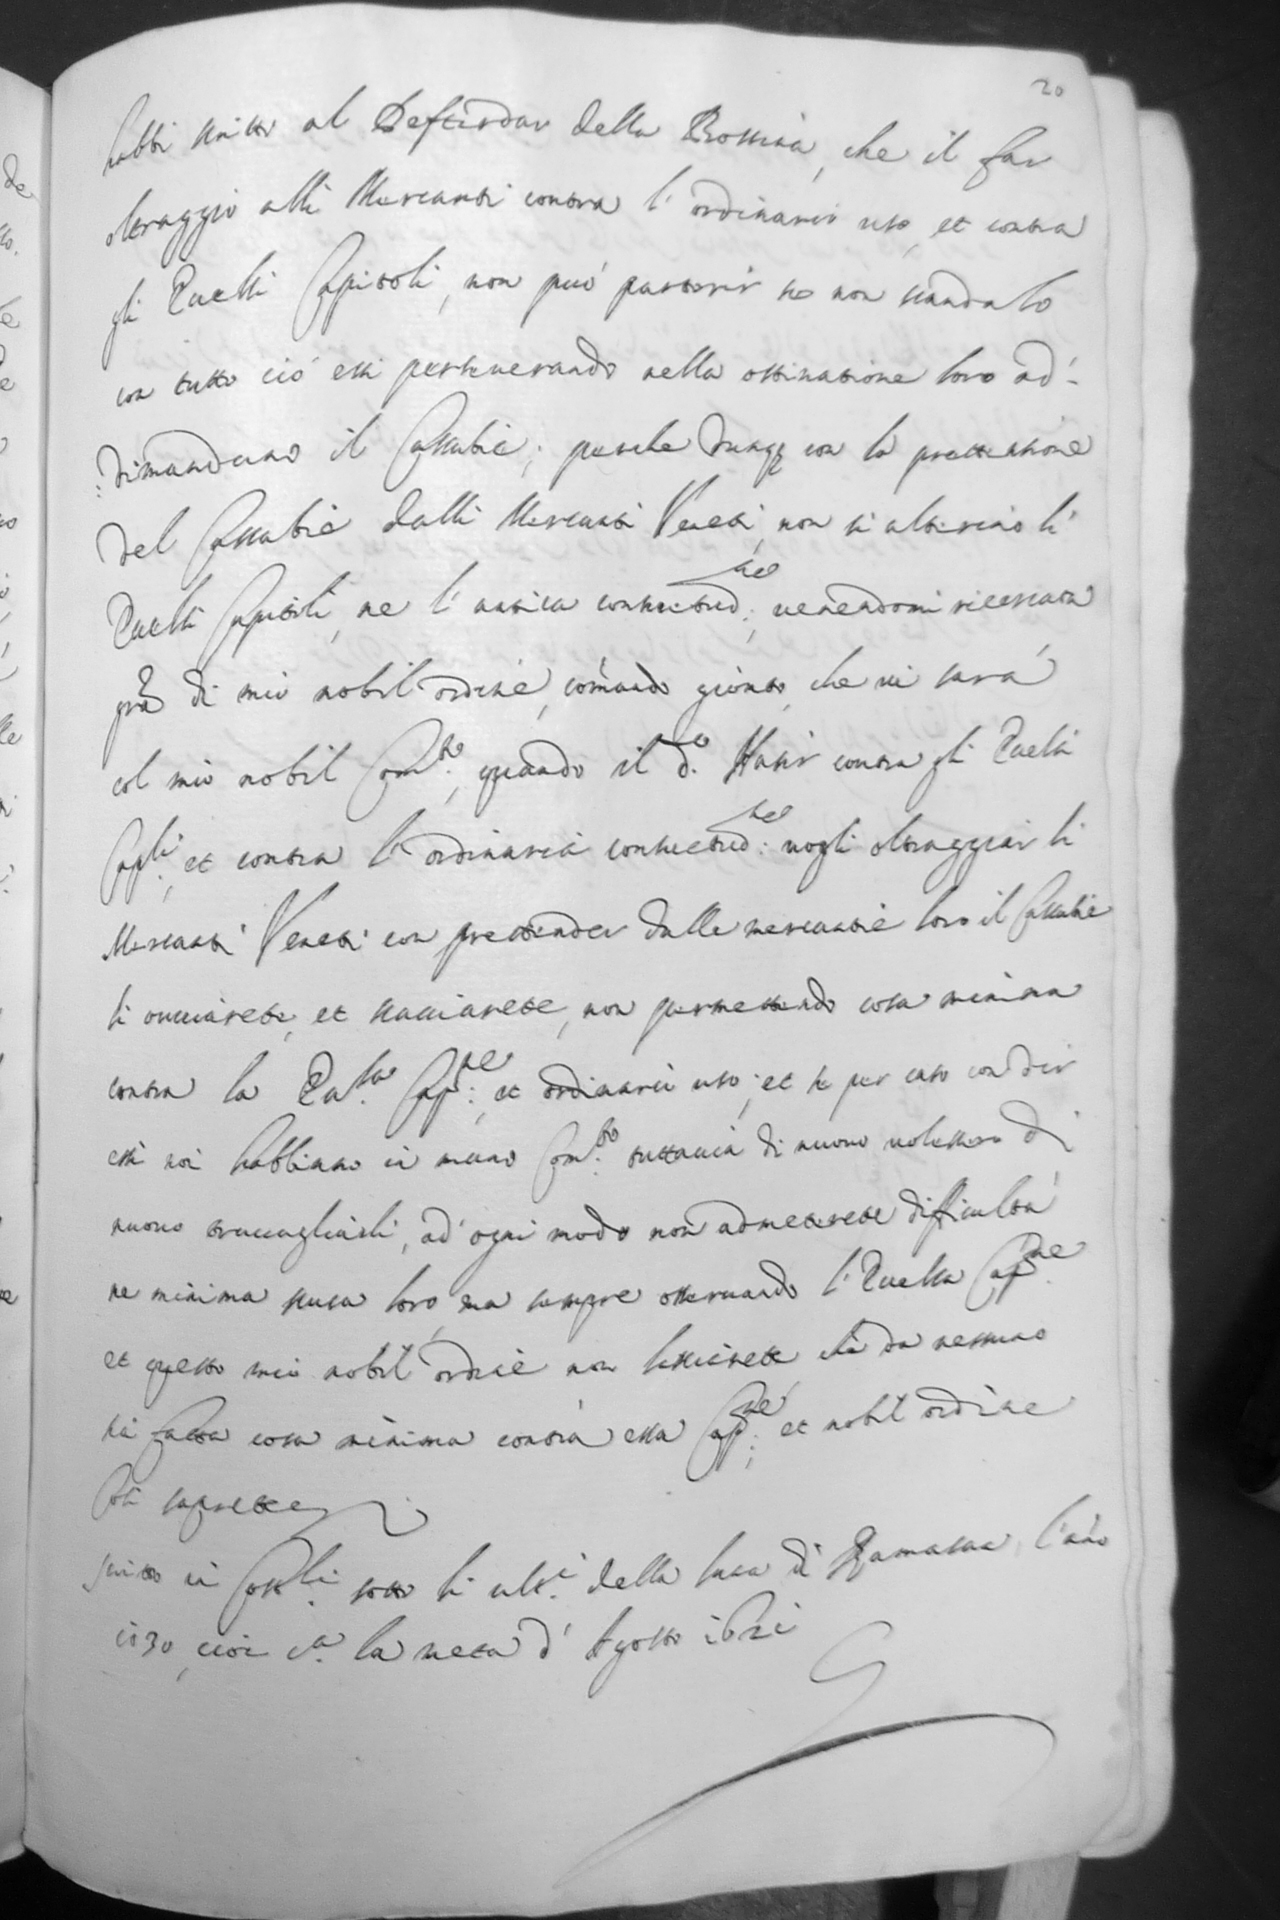 20
habbi scritto al Defterdar della Bossina, che il far
oltraggio alli Mercanti contra l' ordinario uso, et contra
gli Eccelsi Capitoli, non può partorir se non scandalo
con tutto ciò essi perseverando nella ostinatione loro ad-
:dimandano il Cassabie; perche dunq; con la prettensione
del Cassabie dalli Mercanti Veneti, non si alterino li
Eccelsi Capitoli, ne l' antica consuetud:ne, venendomi ricercata
gra di mio nobil ordine, comando gionto, che vi sarà
col mio nobil Com:to, quando il d:o Nasir contra gli Eccelsi
Cap:li, et contra l' ordinaria consuetud:ne vogli oltraggiar li
Mercanti Veneti con prettender dalle mercantie loro il Cassabie
li ovviarete, et scacciarete, non permettendo cosa minima
contra la Ecc:sa Cap:ne, et ordinario uso; et se per caso con dir
essi noi habbiamo in mano Com:to tuttavia di nuovo volessero di
nuovo travagliarli, ad' ogni modo non admetterete difficoltà
ne minima scusa loro, ma sempre osservando l' Eccelsa Cap:ne
et questo mio nobil' ordine non lassiarete che da nessuno
sia fatta cosa minima contra essa Cap:ne, et nobil ordine
Così saprete
Scritto in Cost:li sotto li ult:i della Luna di Ramasan, l'año
1030, cioè c:a la metà d' Agosto 1621